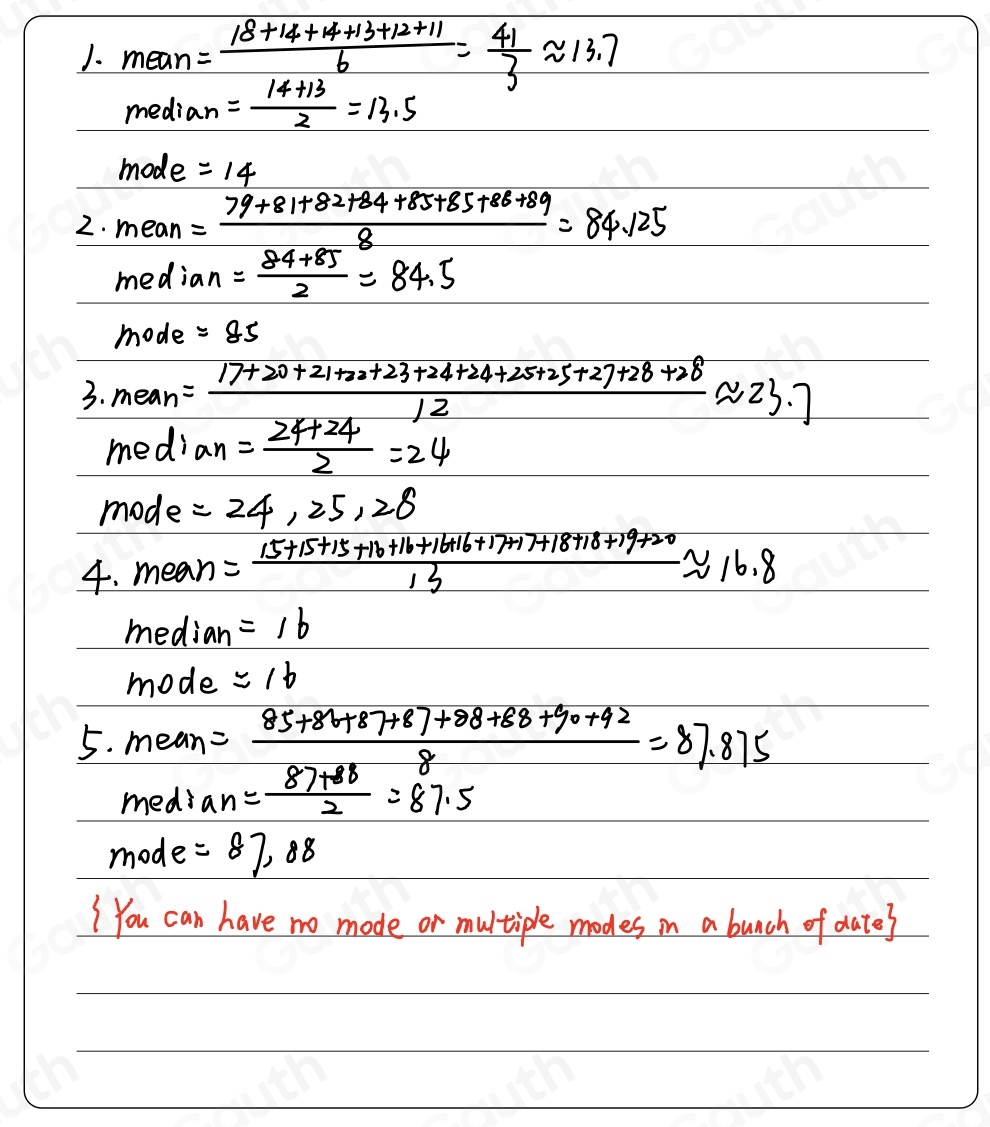 1. mean = (18+14+14+13+12+11)/6 = 41/3 ≈ 13.7
median = (14+13)/2 = 13.5
mode = 14
2. mean = (79+81+82+84+85+85+88+89)/8 = 84.125
median = (84+85)/2 = 84.5
mode = 85
3. mean = (17+20+21+22+23+24+24+25+25+27+28+28)/12 ≈ 23.7
median = (24+24)/2 = 24
mode = 24, 25, 28
4. mean = (15+15+15+16+16+16+16+17+17+18+18+19+20)/13 ≈ 16.8
median = 16
mode = 16
5. mean = (85+86+87+87+88+88+90+92)/8 = 87.875
median = (87+88)/2 = 87.5
mode = 87, 88
{You can have no mode or multiple modes in a bunch of date}